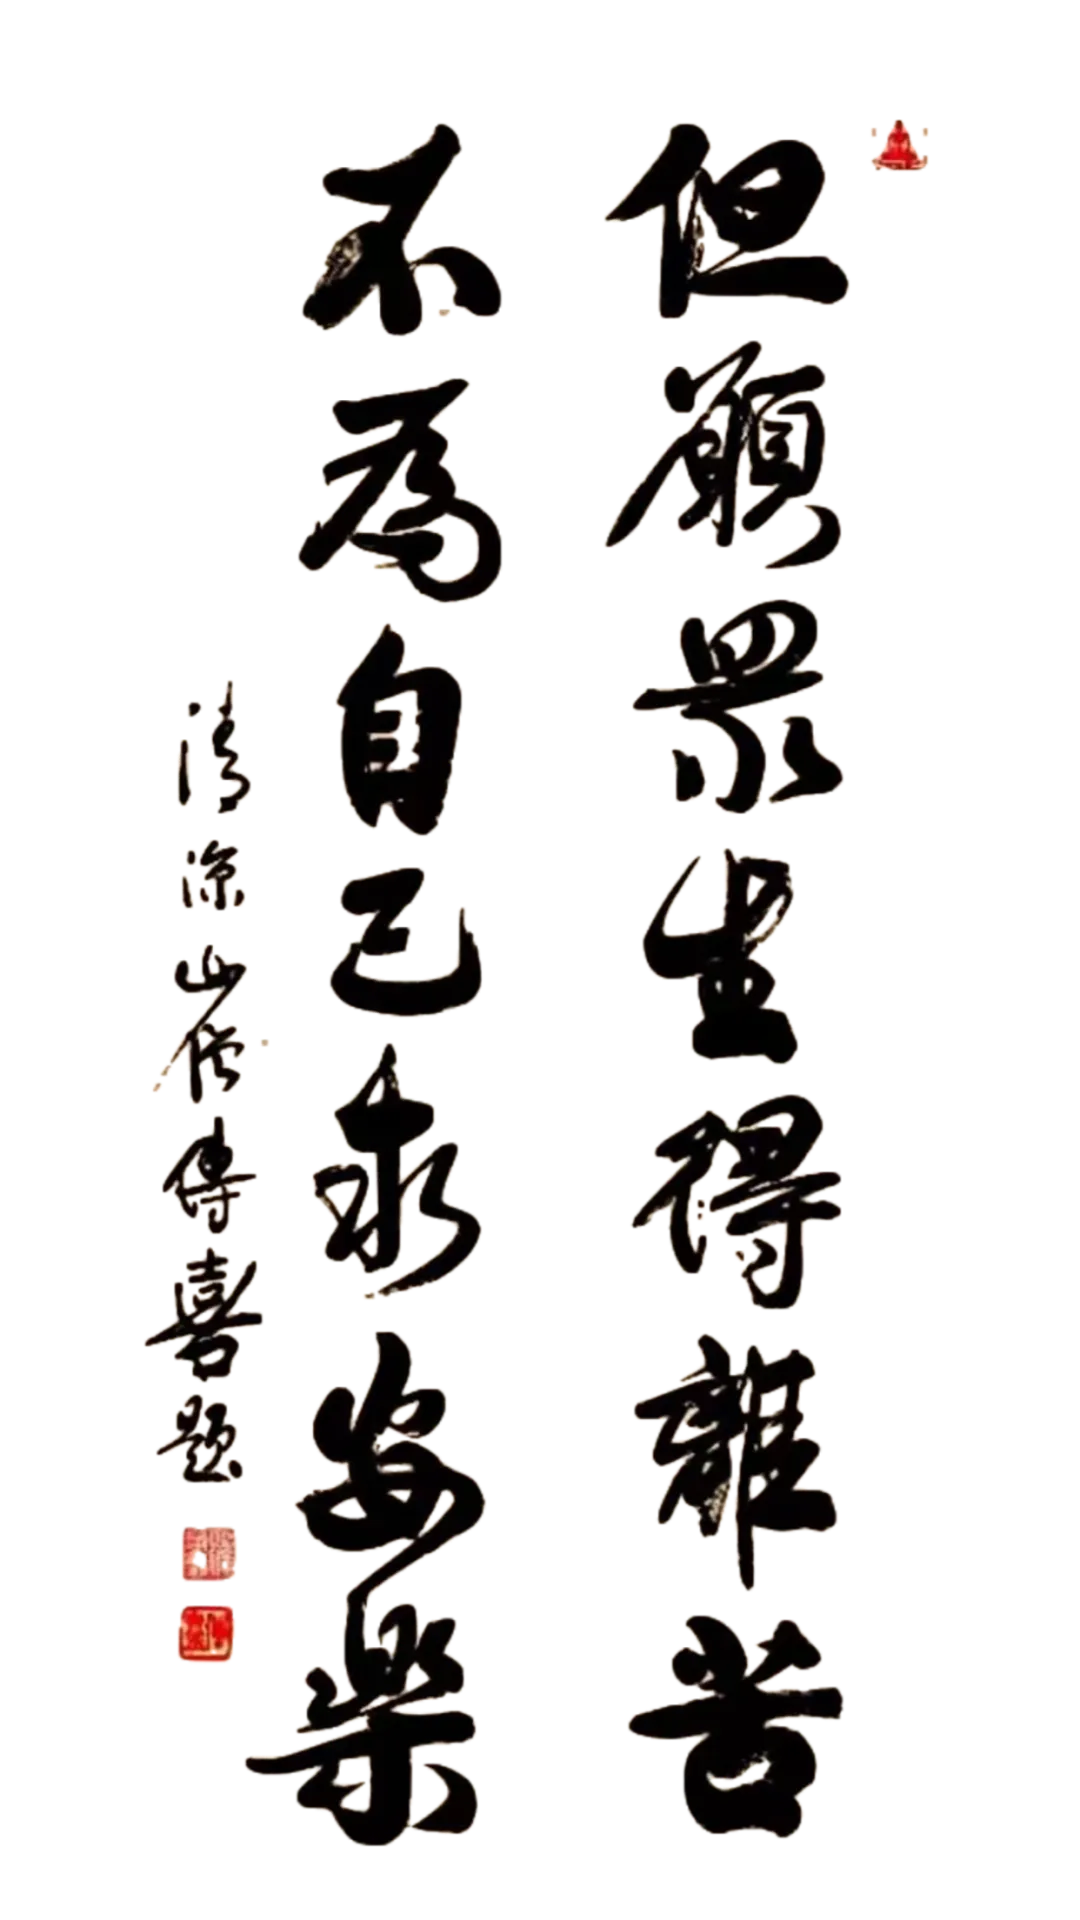 但願眾生得離苦
不為自己求安樂
清涼山僧傳喜題